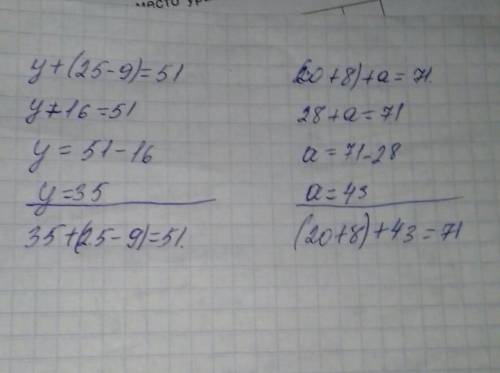 место ур
y+(25-9)=51
y+16=51
y = 51-16
y=35
35+(25-9)=51.
(20+8)+a=71.
28+a=71
a=71-28
a=43
(20+8)+43=71